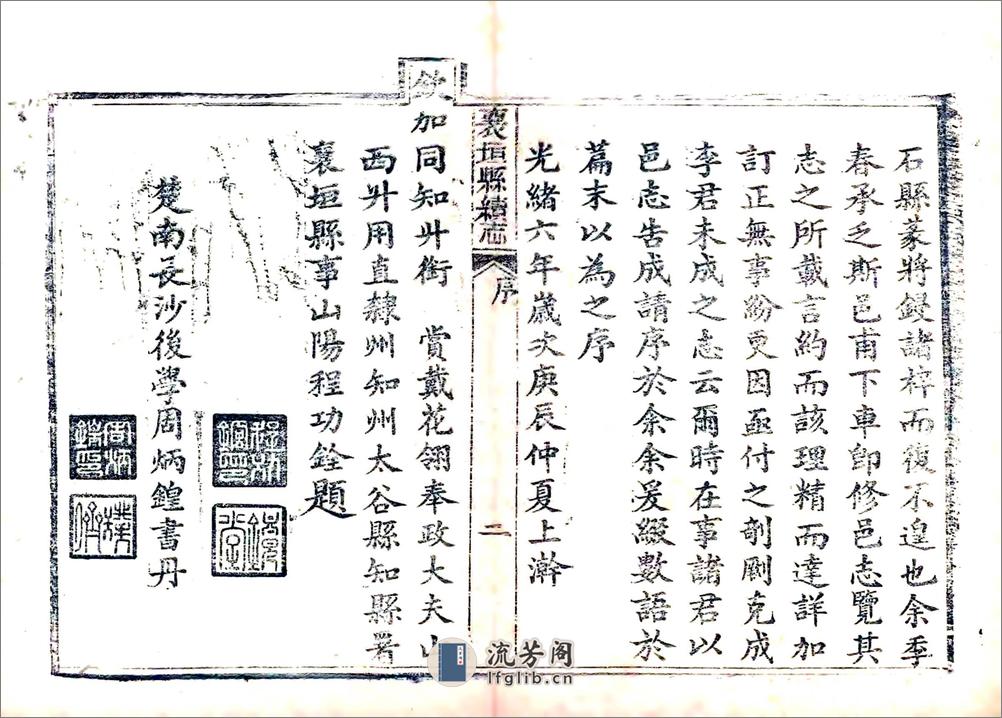 石縣篆將鋟諸梓而復不遑也余季
春承乏斯邑甫下車卽修邑志覽其
志之所載言約而該理精而達詳加
訂正無事紛更因亟付之剞劂克成
李君未成之志云爾時在事諸君以
邑志告成請序於余余爰綴數語於
篇末以為之序
光緒六年歲次庚辰仲夏上澣
襄垣縣續志
序
二
欽加同知升銜 賞戴花翎奉政大夫山
西升用直隸州知州太谷縣知縣署
襄垣縣事山陽程功銓題
楚南長沙後學周炳鍠書丹
周炳鍠印
流芳阁
lfglib.cn